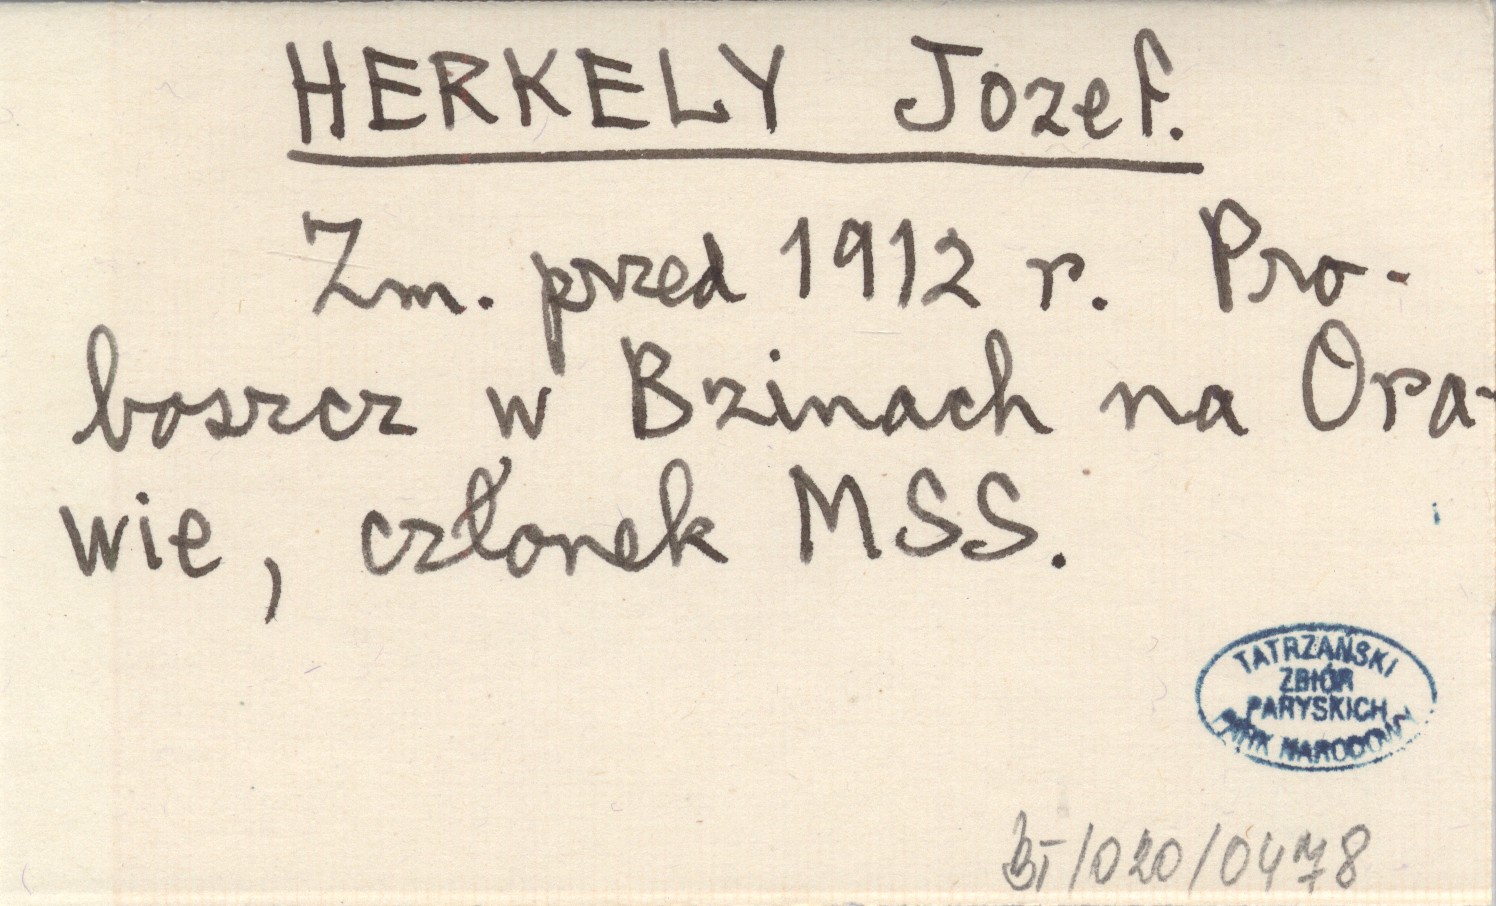 HERKELY Jozef.
Zm. przed 1912 r. Pro-
boszcz w Bzinach na Ora-
wie, członek MSS.
TATRZAŃSKI
ZBIÓR
PARYSKICH
PARK NARODOWY
BT/020/0478